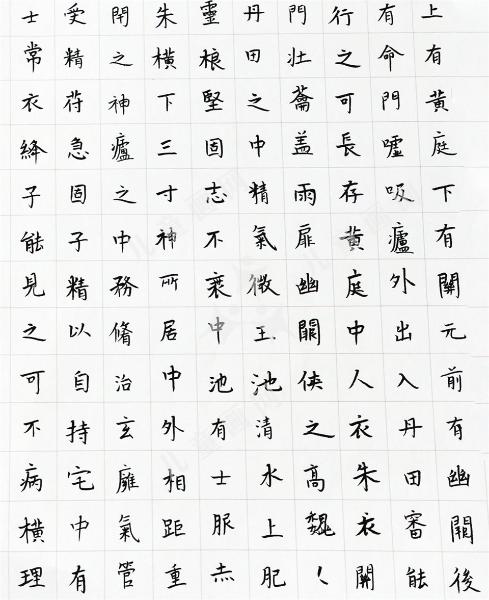 上有黄庭下有關元前有幽闕後
有命門噓吸廬外出入丹田審能
行之可長存黄庭中人衣朱衣關
門壮蘥盖兩扉幽闕俠之高魏！
丹田之中精氣微玉池清水上肥
靈根堅固志不衰中池有士服赤
朱横下三寸神所居中外相距重
閇之神廬之中務脩治玄廱氣管
受精苻急固子精以自持宅中有
士常衣絳子能見之可不病横理